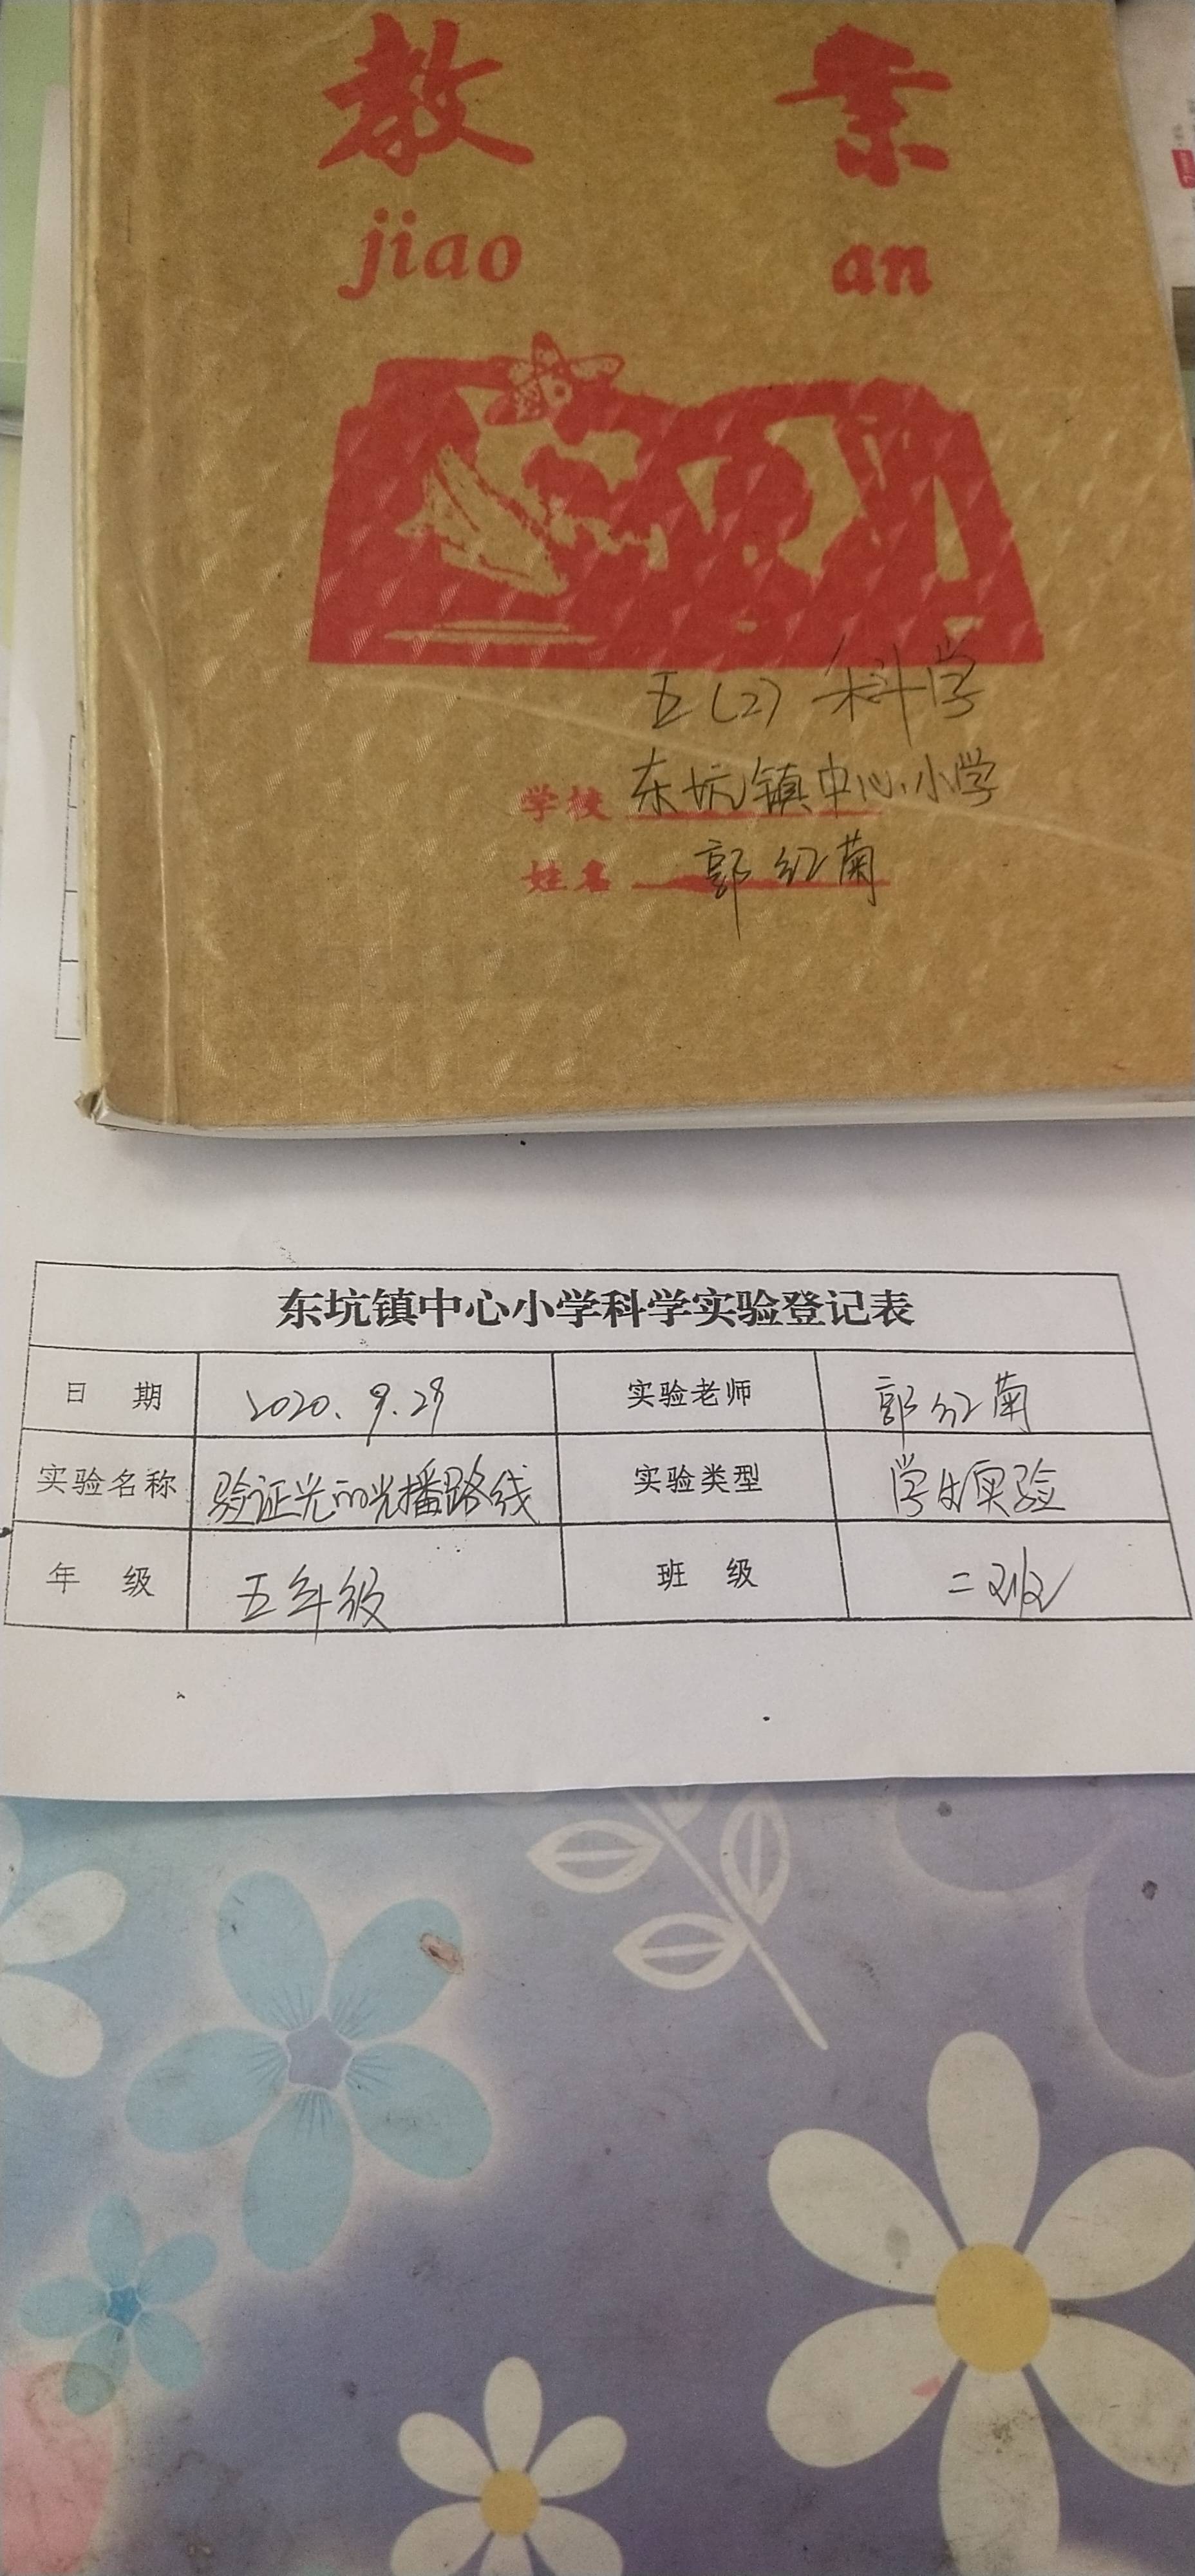 教 案
jiao an
五(2) 科学
学校 东坑镇中心小学
姓名 郭红菊
东坑镇中心小学科学实验登记表
日 期 2020.9.29 实验老师 郭红菊
实验名称 验证光的光播路线 实验类型 学生实验
年 级 五年级 班 级 二班